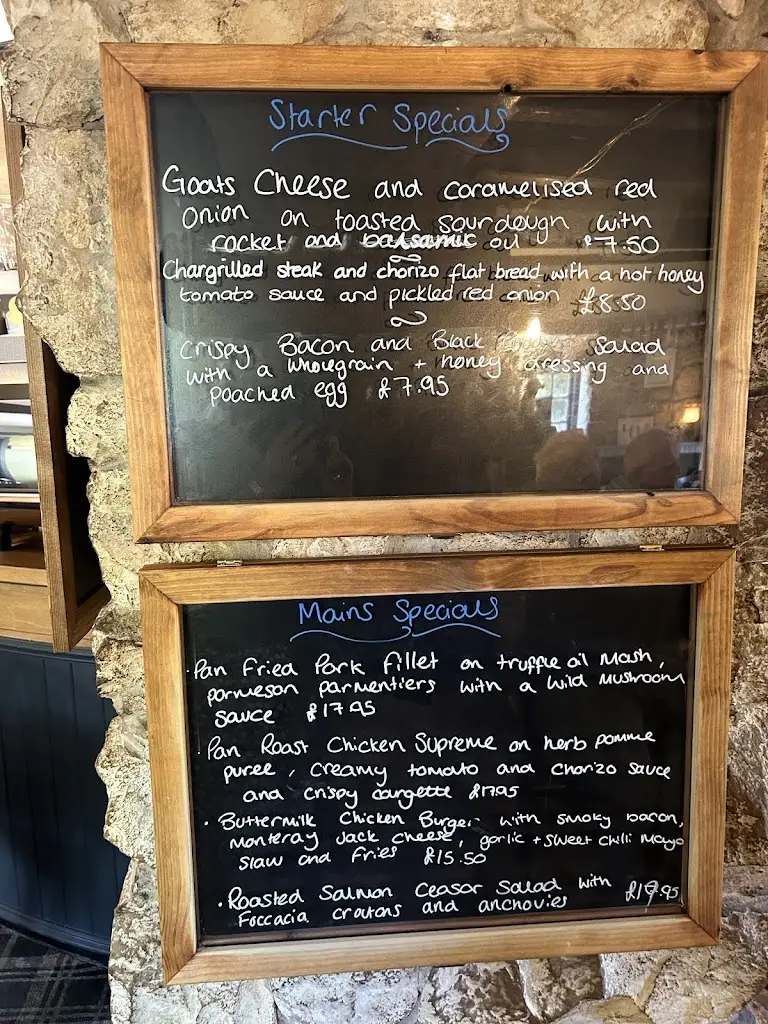 Starter Specials
Goats Cheese and caramelised red
onion on toasted sourdough with
rocket and balsamic oil £7.50
Chargrilled steak and chorizo flat bread with a hot honey
tomato sauce and pickled red onion £8.50
Crispy Bacon and Black salad
with a wholegrain + honey dressing and
poached egg £7.95
Mains Specials
· Pan Fried Pork fillet on truffle oil Mash,
parmesan parmentiers with a wild mushroom
sauce £17.95
· Pan Roast Chicken Supreme on herb pomme
puree, creamy tomato and chorizo sauce
and crispy courgette £17.95
· Buttermilk Chicken Burger with smoky bacon,
Monteray Jack cheese, garlic + sweet chilli Mayo
slaw and fries £15.50
· Roasted Salmon Ceasar Salad with
Foccacia croutons and anchovies